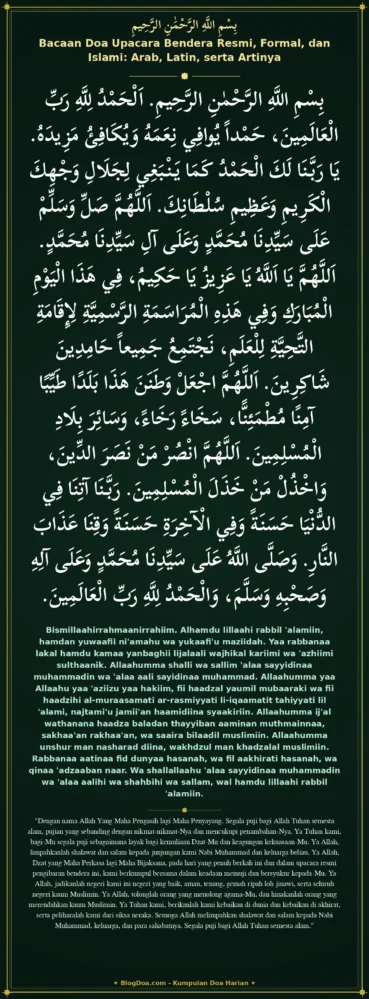 بِسْمِ اللَّهِ الرَّحْمَٰنِ الرَّحِيمِ
Bacaan Doa Upacara Bendera Resmi, Formal, dan
Islami: Arab, Latin, serta Artinya
بِسْمِ اللَّهِ الرَّحْمَٰنِ الرَّحِيمِ. اَلْحَمْدُ لِلَّهِ رَبِّ
الْعَالَمِينَ، حَمْداً يُوَافِي نِعَمَهُ وَيُكَافِئُ مَزِيدَهُ.
يَا رَبَّنَا لَكَ الْحَمْدُ كَمَا يَنْبَغِي لِجَلَالِ وَجْهِكَ
الْكَرِيمِ وَعَظِيمِ سُلْطَانِكَ. اَللَّهُمَّ صَلِّ وَسَلِّمْ
عَلَى سَيِّدِنَا مُحَمَّدٍ وَعَلَى آلِ سَيِّدِنَا مُحَمَّدٍ.
اَللَّهُمَّ يَا اَللَّهُ يَا عَزِيزُ يَا حَكِيمُ، فِي هَذَا الْيَوْمِ
الْمُبَارَكِ وَفِي هَذِهِ الْمُرَاسَمَةِ الرَّسْمِيَّةِ لِإِقَامَةِ
التَّحِيَّةِ لِلْعَلَمِ، نَجْتَمِعُ جَمِيعاً حَامِدِينَ
شَاكِرِينَ. اَللَّهُمَّ اجْعَلْ وَطَنَنَا هَذَا بَلَدًا طَيِّبًا
آمِنًا مُطْمَئِنًّا، سَخَاءً رَخَاءً، وَسَائِرَ بِلَادِ
الْمُسْلِمِينَ. اَللَّهُمَّ انْصُرْ مَنْ نَصَرَ الدِّينَ،
وَاخْذُلْ مَنْ خَذَلَ الْمُسْلِمِينَ. رَبَّنَا آتِنَا فِي
الدُّنْيَا حَسَنَةً وَفِي الْآخِرَةِ حَسَنَةً وَقِنَا عَذَابَ
النَّارِ. وَصَلَّى اللَّهُ عَلَى سَيِّدِنَا مُحَمَّدٍ وَعَلَى آلِهِ
وَصَحْبِهِ وَسَلَّمَ، وَالْحَمْدُ لِلَّهِ رَبِّ الْعَالَمِينَ.
Bismillaahirrahmaanirrahiim. Alhamdu lillaahi rabbil 'alamiin,
hamdan yuwaafii ni'amahu wa yukaafi'u maziidah. Yaa rabbanaa
lakal hamdu kamaa yanbaghii lijalaali wajhikal kariimi wa 'azhiimi
sulthaanik. Allaahumma shalli wa sallim 'alaa sayyidinaa
muhammadin wa 'alaa aali sayidinaa muhammad. Allaahumma yaa
Allaahu yaa 'aziizu yaa hakiim, fii haadzal yaumil mubaaraki wa fii
haadzihi al-muraasamati ar-rasmiyyati li-iqaamatit tahiyyati lil
'alami, najtami'u jamii'an haamidiina syaakiriin. Allaahumma ij'al
wathanana haadza baladan thayyiban aaminan muthmainnaa,
sakhaa'an rakhaa'an, wa saaira bilaadil muslimiin. Allaahumma
unshur man nasharad diina, wakhdzul man khadzalal muslimiin.
Rabbanaa aatinaa fid dunyaa hasanah, wa fil aakhirati hasanah, wa
qinaa 'adzaaban naar. Wa shallallaahu 'alaa sayyidinaa muhammadin
wa 'alaa aalihi wa shahbihi wa sallam, wal hamdu lillaahi rabbil
'alamiin.
"Dengan nama Allah Yang Maha Pengasih lagi Maha Penyayang. Segala puji bagi Allah Tuhan semesta
alam, pujian yang sebanding dengan nikmat-nikmat-Nya dan mencukupi penambahan-Nya. Ya Tuhan kami,
bagi-Mu segala puji sebagaimana layak bagi kemuliaan Dzat-Mu dan keagungan kekuasaan-Mu. Ya Allah,
limpahkanlah shalawat dan salam kepada junjungan kami Nabi Muhammad dan keluarga beliau. Ya Allah,
Dzat yang Maha Perkasa lagi Maha Bijaksana, pada hari yang penuh berkah ini dan dalam upacara resmi
pengibaran bendera ini, kami berkumpul bersama dalam keadaan memuji dan bersyukur kepada-Mu. Ya
Allah, jadikanlah negeri kami ini negeri yang baik, aman, tenang, gemah ripah loh jinawi, serta seluruh
negeri kaum Muslimin. Ya Allah, tolonglah orang yang menolong agama-Mu, dan hinakanlah orang yang
merendahkan kaum Muslimin. Ya Tuhan kami, berikanlah kami kebaikan di dunia dan kebaikan di akhirat,
serta peliharalah kami dari siksa neraka. Semoga Allah melimpahkan shalawat dan salam kepada Nabi
Muhammad, keluarga, dan para sahabatnya. Segala puji bagi Allah Tuhan semesta alam."
✦ BlogDoa.com - Kumpulan Doa Harian ✦